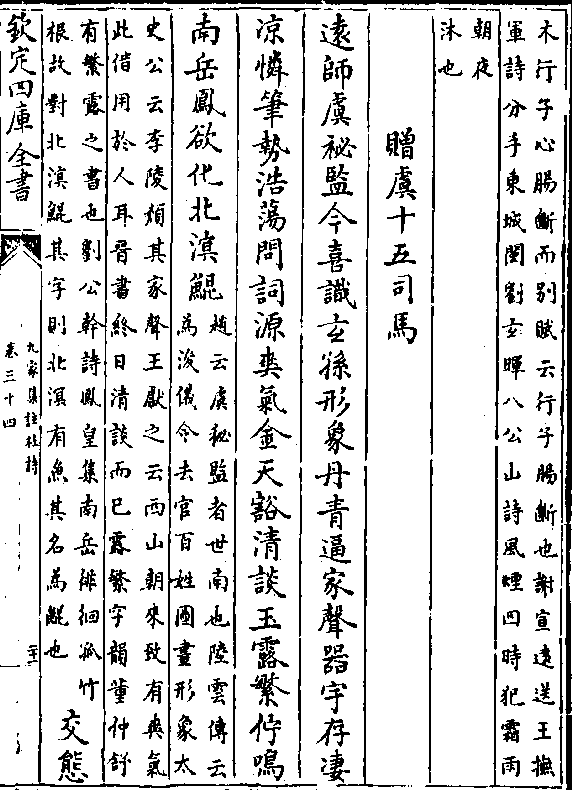 木行子心腸斷而别賦云行子腸斷也謝宣逺送王撫
軍詩分手東城闉劉玄暉八公山詩風煙四時犯霜雨
朝夜
沐也
贈虞十五司馬
逺師虞祕監今喜識玄孫形象丹青逼家聲器宇存凄
凉憐筆勢浩蕩問詞源爽氣金天豁清談玉露繁佇鳴
南岳鳳欲化北溟鯤
趙云虞祕監者世南也陸雲傳云
為浚儀令去官百姓圖畫形象太
史公云李陵頹其家聲王獻之云西山朝來致有爽氣
此借用於人耳晉書終日清談而已露繁字韻董仲舒
有繁露之書也劉公幹詩鳳皇集南岳徘徊孤竹
根故對北溟鯤其字則北溟有魚其名為鯤也
交態
欽定四庫全書
九家集註杜詩
卷三十四